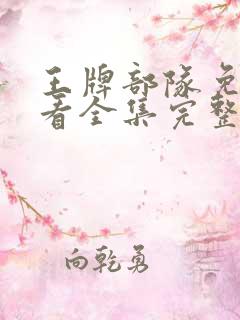 王牌部队免
看全集完整
向乾勇